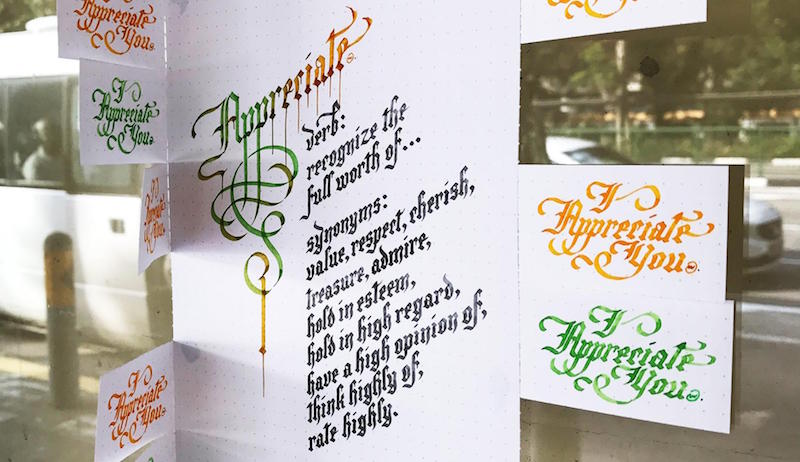 Appreciate
verb:
recognize the
full worth of...
synonyms:
value, respect, cherish,
treasure, admire,
hold in esteem,
hold in high regard,
have a high opinion of,
think highly of,
rate highly.
Appreciate
You
I
Appreciate
You
I
Appreciate
You
I
Appreciate
You
Appreciate
You
I
Appreciate
You
I
Appreciate
You